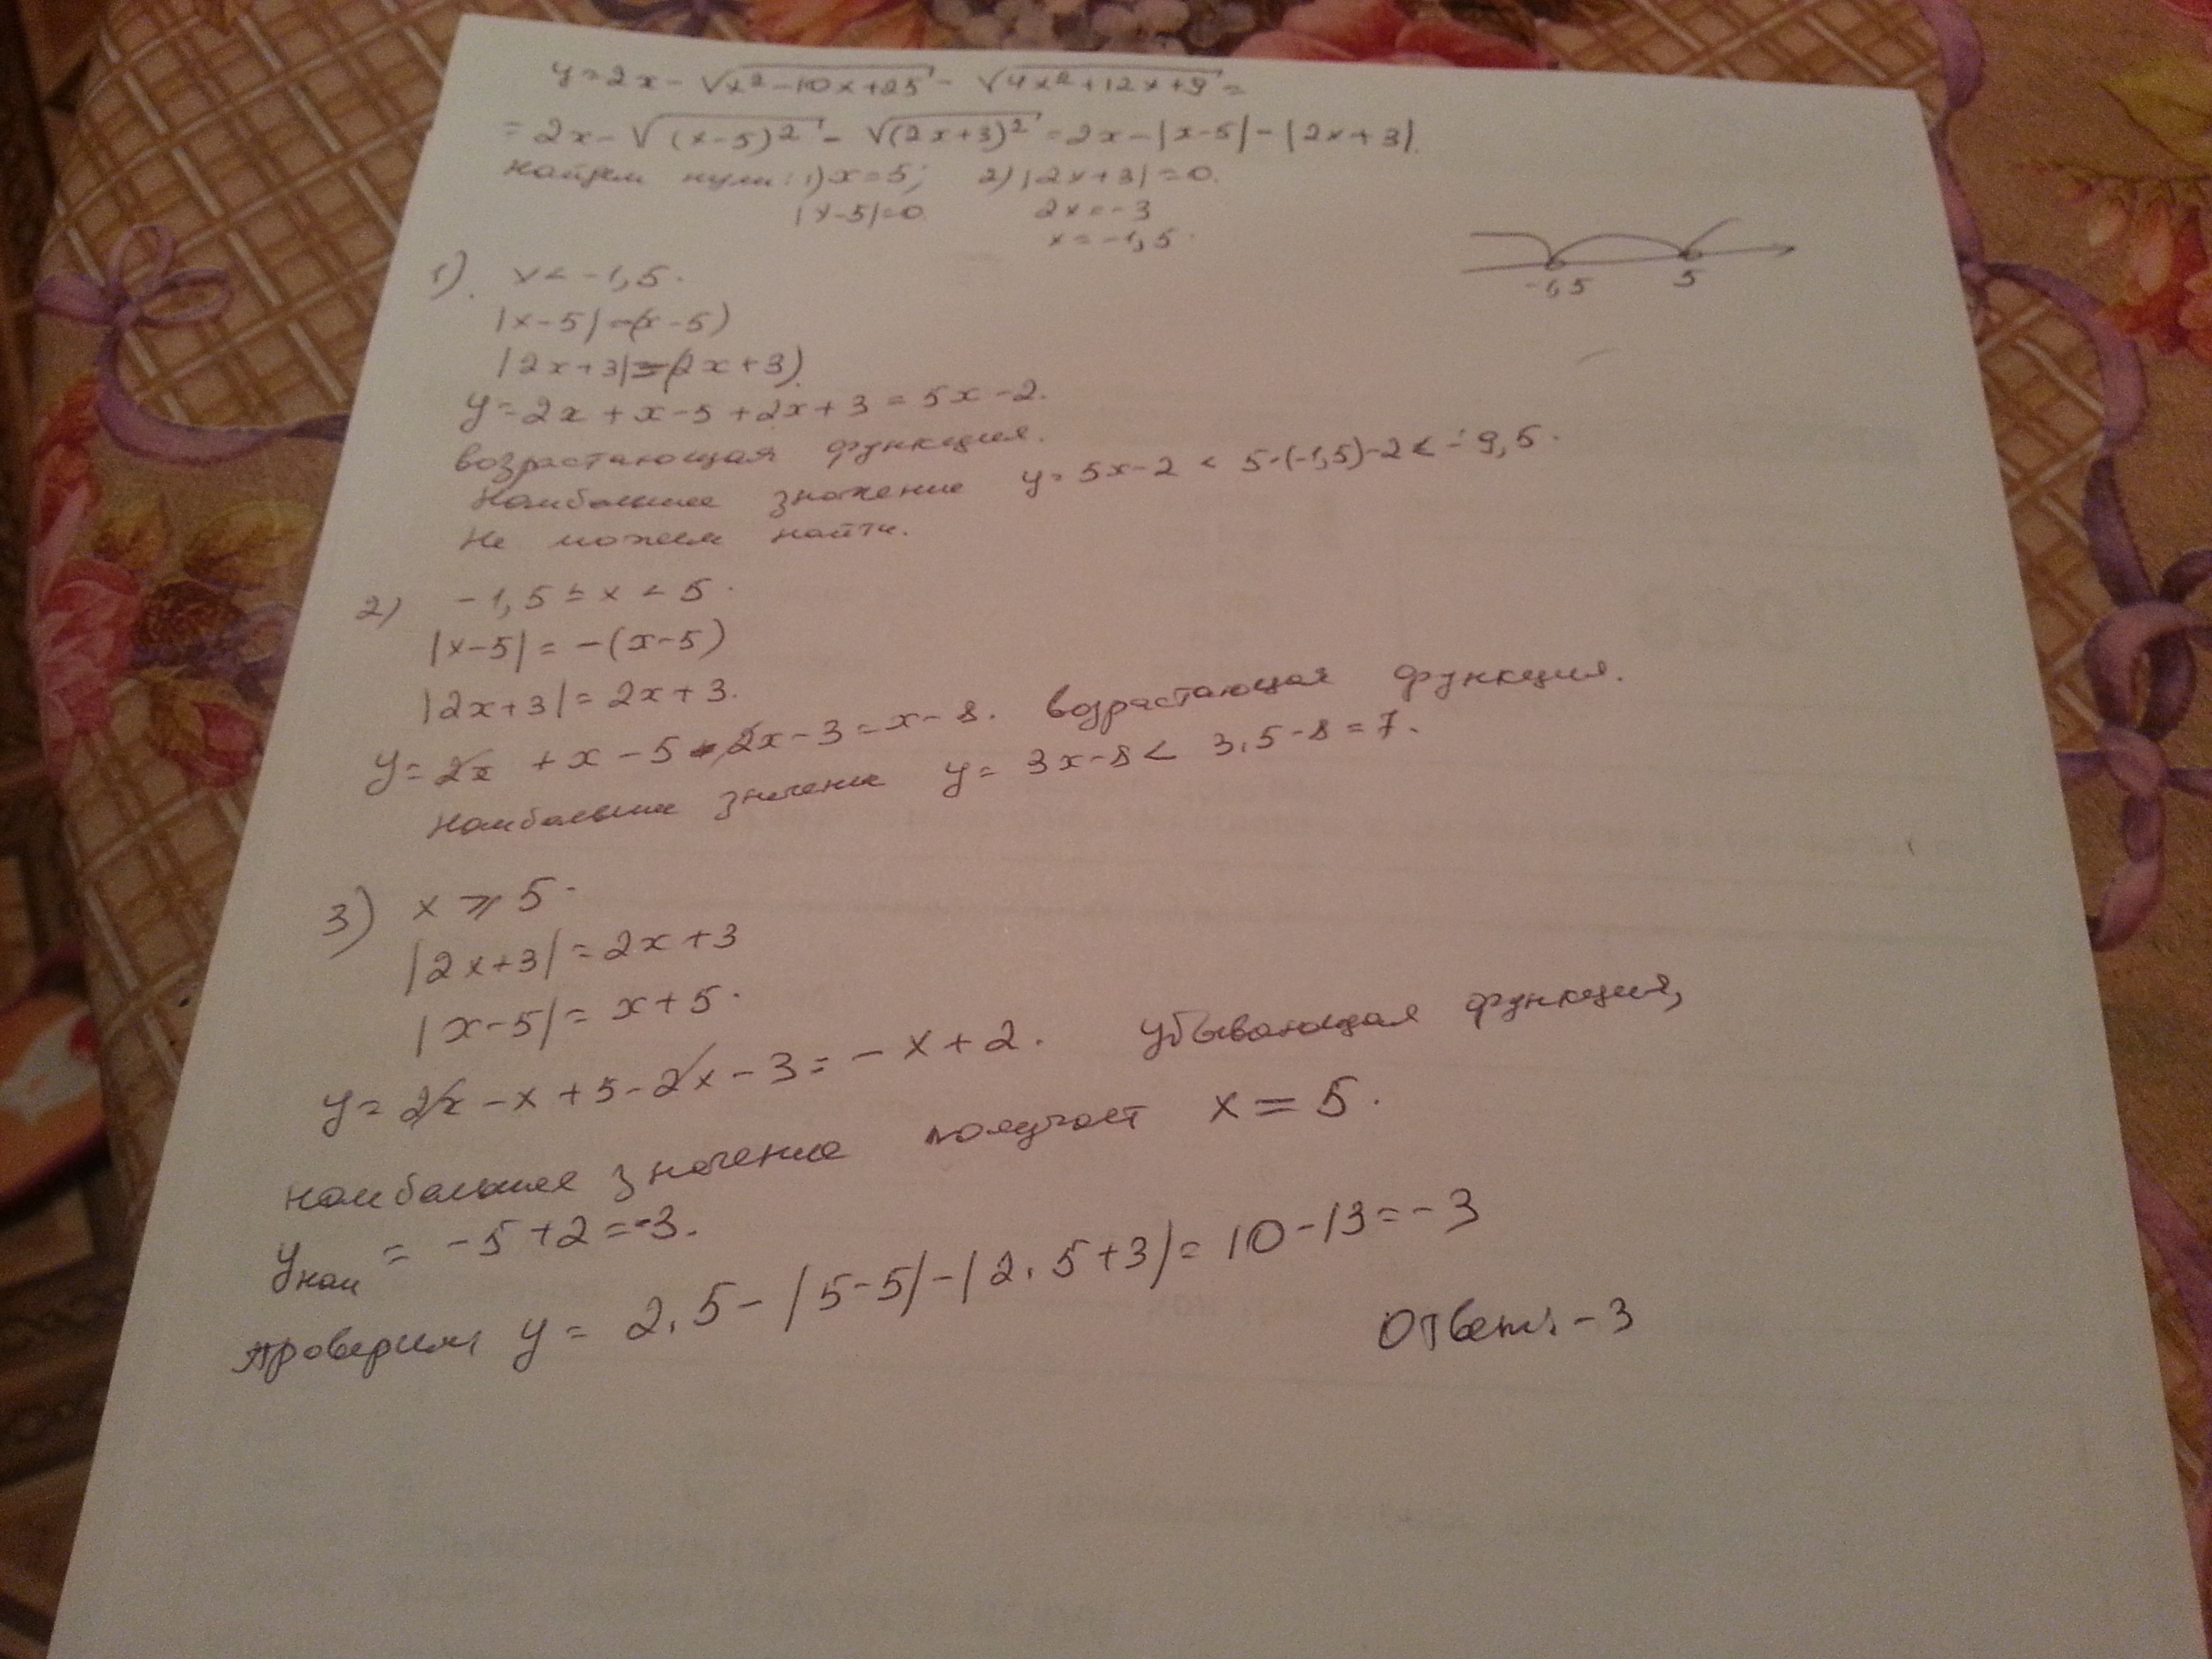 y=2x-√(x²-10x+25)-√(4x²+12x+9)=
=2x-√((x-5)²)-√((2x+3)²)=2x-|x-5|-|2x+3|.
найдем нули: 1) x=5; 2) |2x+3|=0.
|x-5|=0 2x=-3
x=-1,5.
-1,5 5
1). x<-1,5.
|x-5|=-(x-5)
|2x+3|=-(2x+3).
y=2x+x-5+2x+3=5x-2.
возрастающая функция.
Наибольшее значение y=5x-2 < 5·(-1,5)-2<-9,5.
Не можем найти.
2) -1,5≤x<5.
|x-5|=-(x-5)
|2x+3|=2x+3.
y=2x+x-5-2x-3=x-8. возрастающая функция.
Наибольшее значение y=3x-8< 3·5-8=7.
3) x≥5.
|2x+3|=2x+3
|x-5|=x+5.
y=2x-x+5-2x-3=-x+2. Убывающая функция,
наибольшее значение получает x=5.
yнаи = -5+2=-3.
проверим y=2·5-|5-5|-|2·5+3|=10-13=-3
Ответ: -3